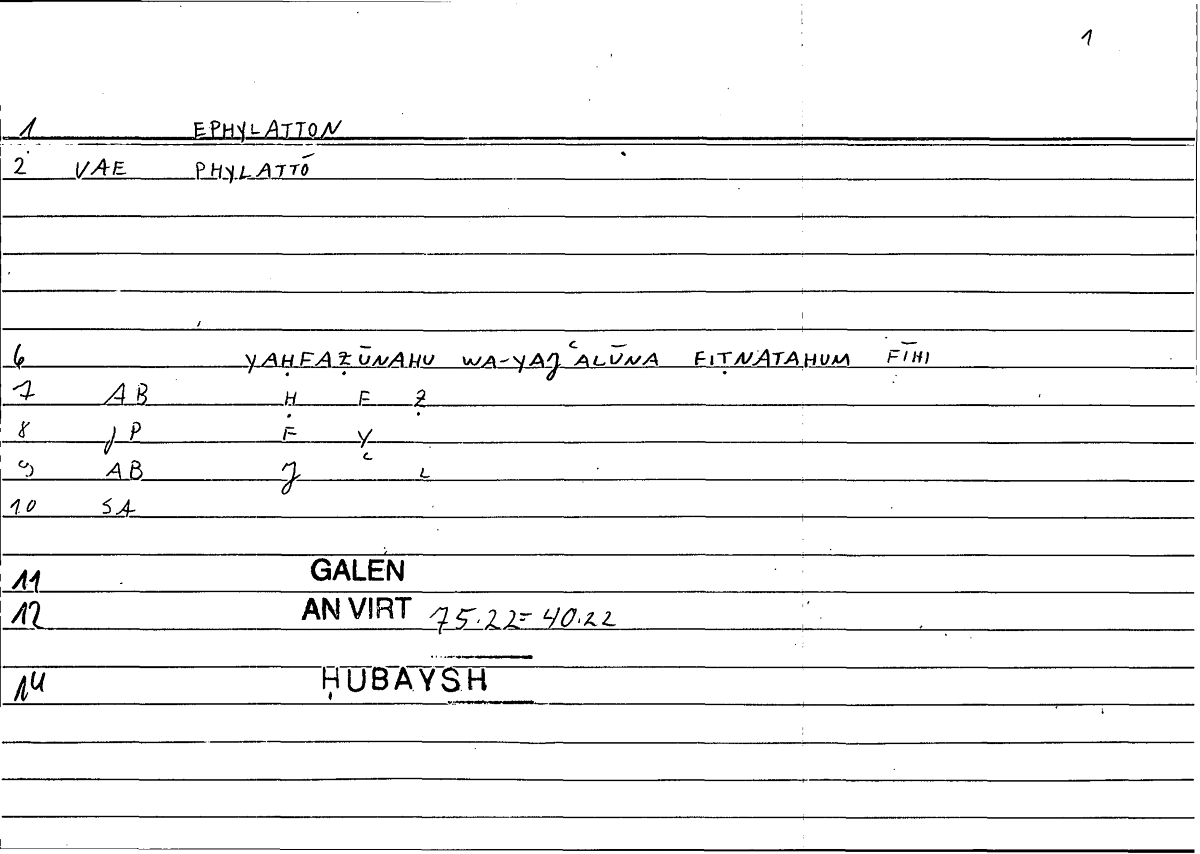 1
1 EPHYLATTON
2 VAE PHYLATTŌ
6 YAḤFAẒŪNAHU WA-YAJʿALŪNA FIṬNATAHUM FĪHI
7 AB Ḥ F Ẓ
8 JP F Y
9 AB J ʿ L
10 SA
11 GALEN
12 AN VIRT 75.22=40.22
14 ḤUBAYSH